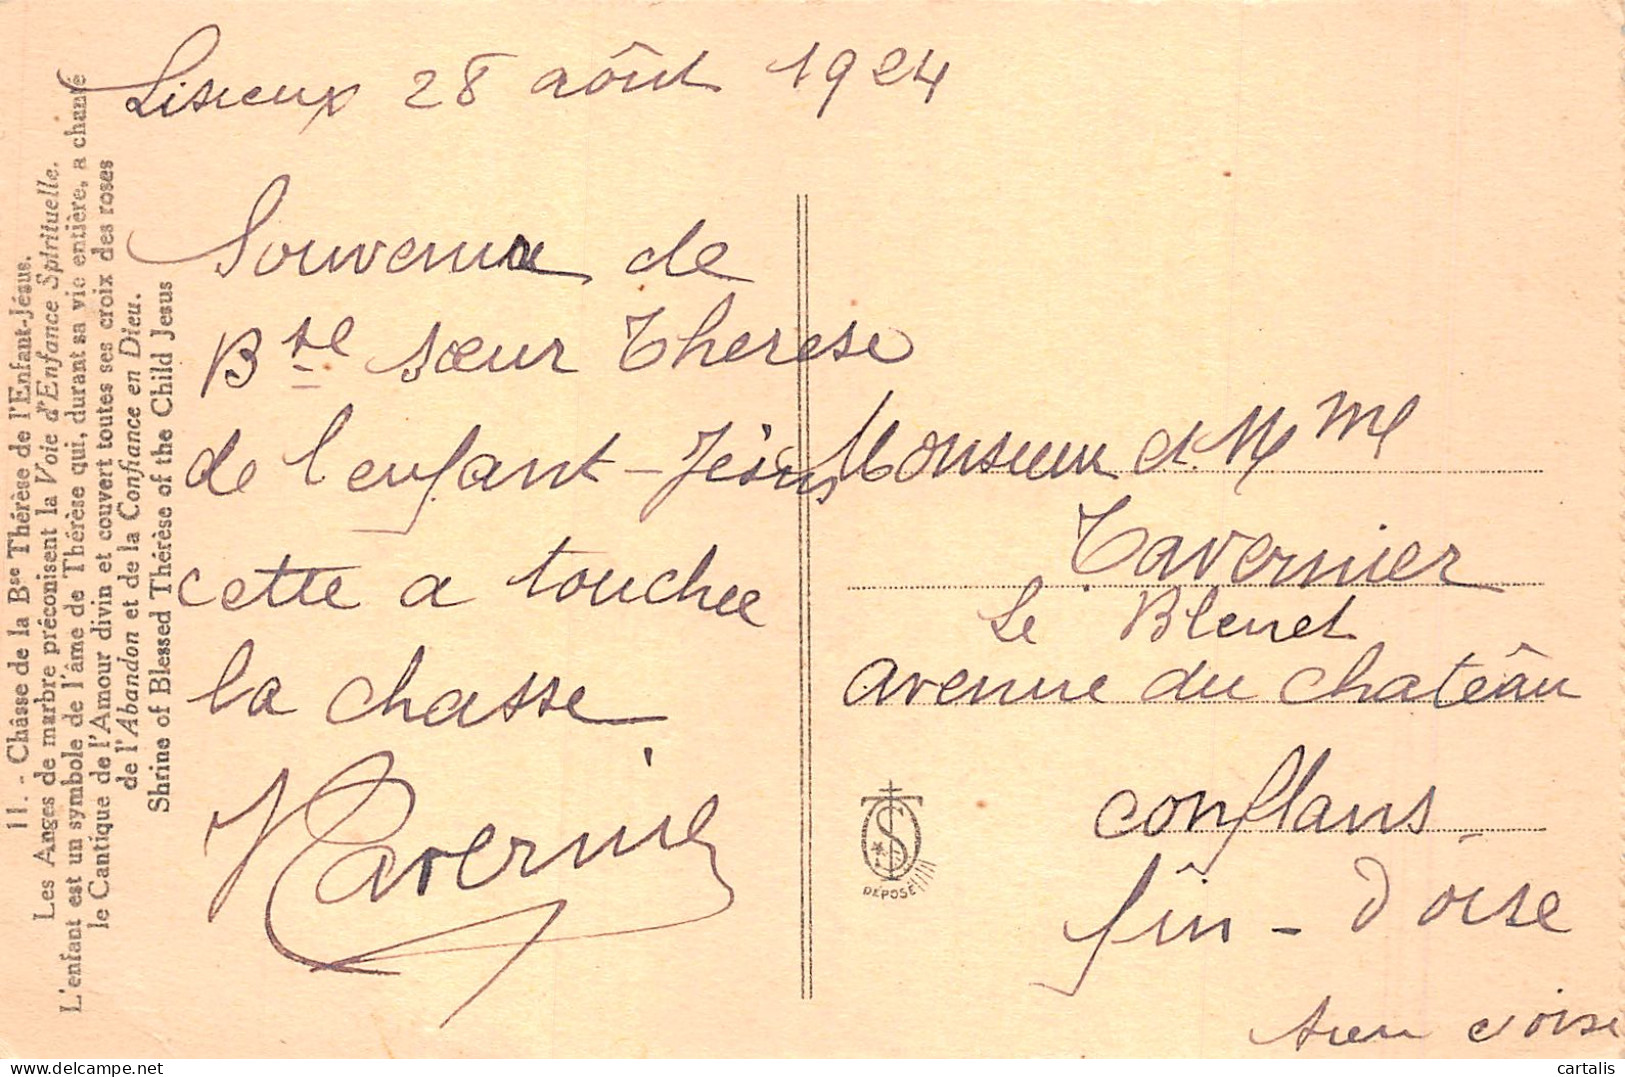 11. - Châsse de la Bse Thérèse de l'Enfant-Jésus.
Les Anges de marbre préconisent la Voie d'Enfance Spirituelle.
L'enfant est un symbole de l'âme de Thérèse qui, durant sa vie entière, a chanté
le Cantique de l'Amour divin et couvert toutes ses croix des roses
de l'Abandon et de la Confiance en Dieu.
Shrine of Blessed Thérèse of the Child Jesus
Lisieux 28 aôut 1924
Souvenir de
Bse sœur Therese
de l'enfant-Jésus
cette a touchee
la chasse
Tavernier
Monsieur et Mme
Tavernier
Le Bleuet
avenue du Chateâu
conflans
fin-d'oise
Seine et oise
DÉPOSÉ
cartalis
delcampe.net